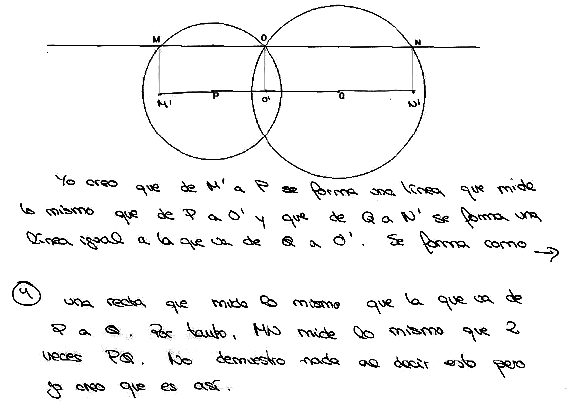 M O N
M' P O' Q N'
Yo creo que de M' a P se forma una línea que mide
lo mismo que de P a O' y que de Q a N' se forma una
línea igual a la que va de Q a O'. Se forma como →
4 una recta que mide lo mismo que la que va de
P a Q. Por tanto, MN mide lo mismo que 2
veces PQ. No demuestro nada al decir esto pero
yo creo que es así.